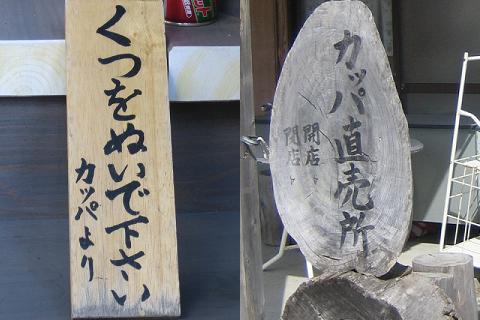 くつをぬいで下さい
カッパより
カッパ直売所
開店
閉店